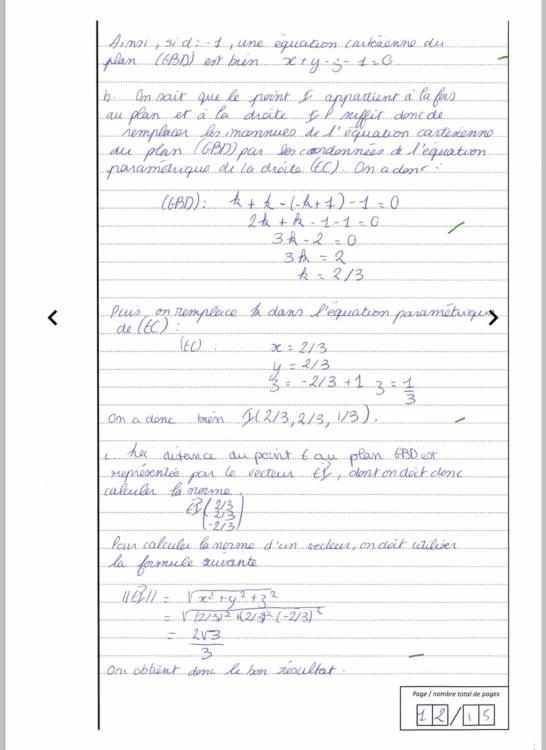 Ainsi, si d = -1, une équation cartésienne du
plan (GBD) est bien x+y-z-1=0
b. On sait que le point I appartient à la fois
au plan et à la droite. Il suffit donc de
remplacer les inconnues de l'équation cartésienne
du plan (GBD) par les coordonnées de l'équation
paramétrique de la droite (EC). On a donc :
(GBD) : k + k - (-k+1) - 1 = 0
2k + k - 1 - 1 = 0
3k - 2 = 0
3k = 2
k = 2/3
Puis, on remplace k dans l'équation paramétrique
de (EC) :
(EC) : x = 2/3
y = 2/3
z = -2/3 + 1 z = 1/3
On a donc bien I(2/3, 2/3, 1/3).
c. La distance du point E au plan GBD est
représentée par le vecteur EI, dont on doit donc
calculer la norme.
EI (2/3
2/3
-2/3)
Pour calculer la norme d'un vecteur, on doit utiliser
la formule suivante
||EI|| = √x²+y²+z²
= √(2/3)²+(2/3)²(-2/3)²
= 2√3/3
On obtient donc le bon résultat.
Page / nombre total de pages
12/15